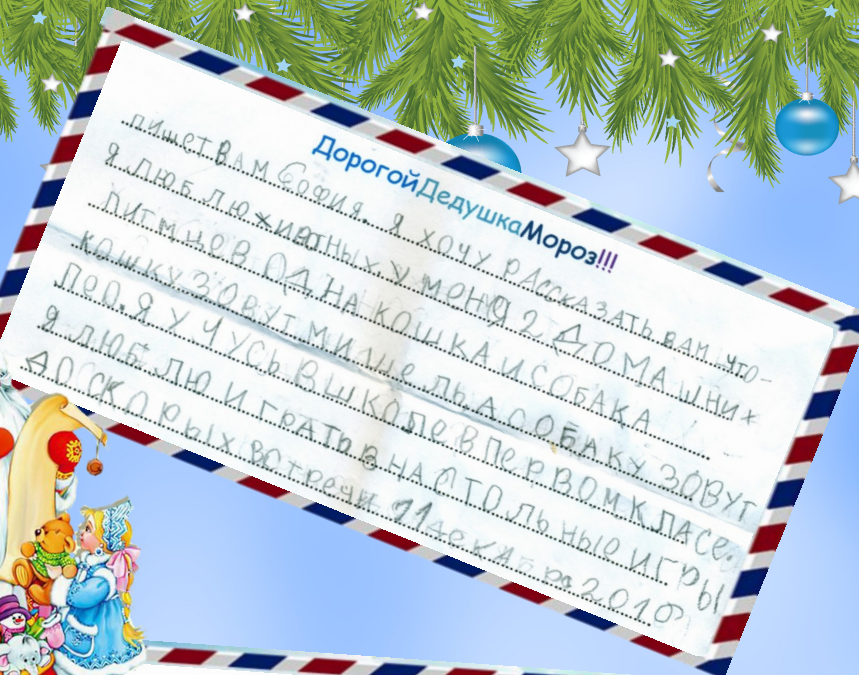 Дорогой Дедушка Мороз!!!
пишет Вам София. я хочу рассказать вам что-
я люблю животных у меня 2 дома
питмцев одна кошка и собака
кошку зовут мишель а собаку зовут
лео. я учусь в школе в первом класе
я люблю играть в настольныю игры
до скорых встречи 21 декабря 2019